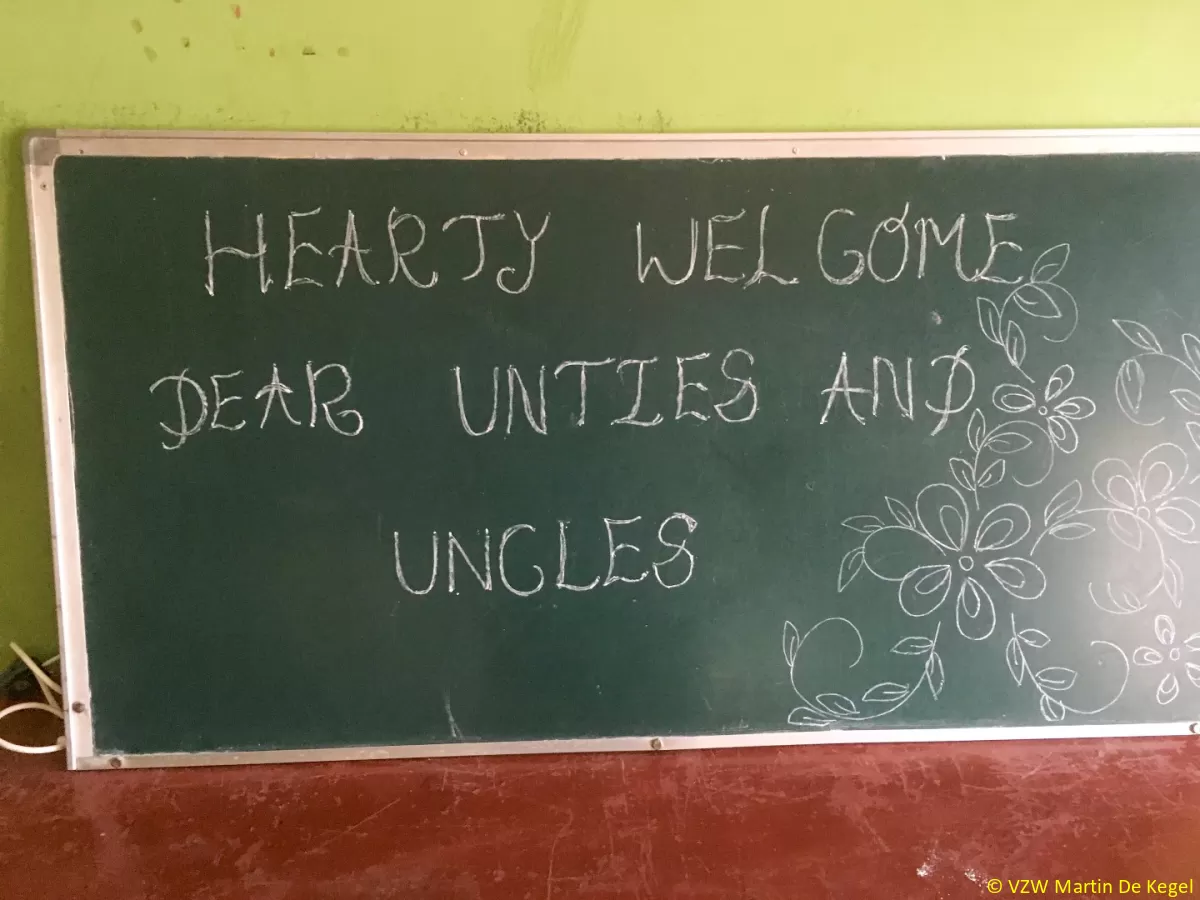 HEARTY WELCOME
DEAR UNTIES AND
UNCLES
© VZW Martin De Kegel